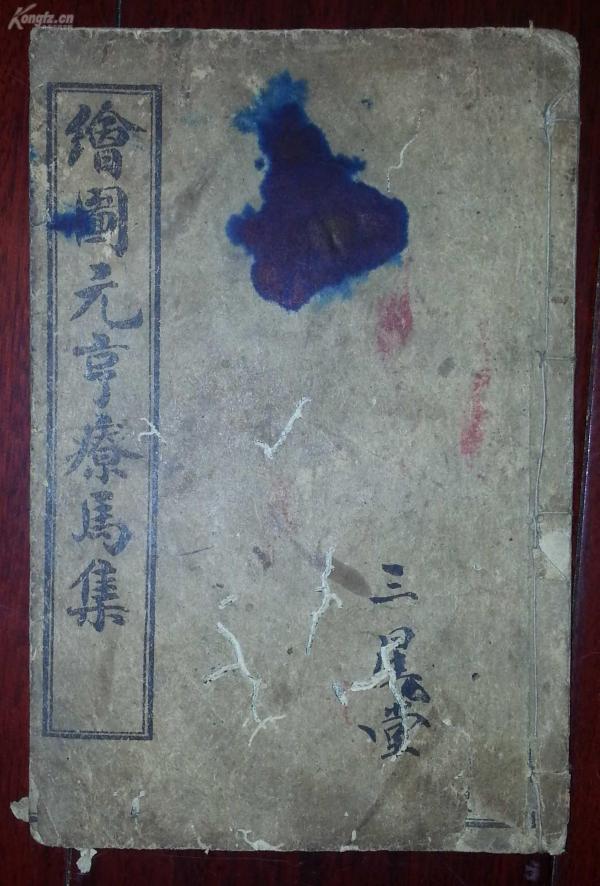 Kongfz.cn
繪圖元亨療馬集
三星堂